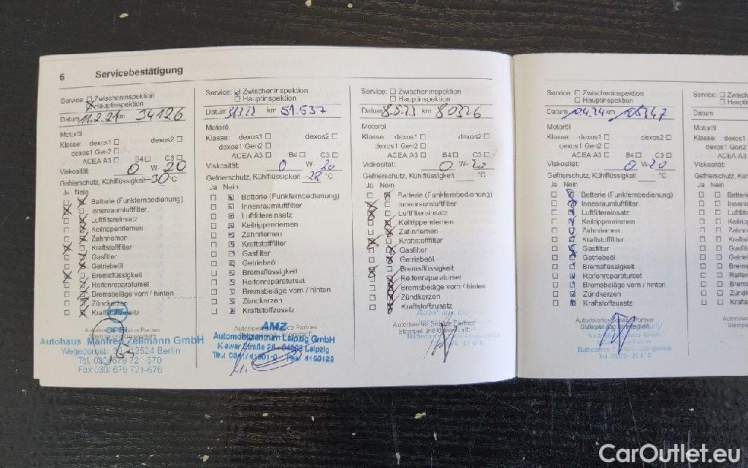 6 Servicebestätigung
Service: Zwischeninspektion
Hauptinspektion
Datum 11.2.21 km 34126
Motoröl
Klasse: dexos1 dexos2
dexos1 Gen2
ACEA A3 B4 C3
Viskosität: 0 W 20
Gefrierschutz, Kühlflüssigkeit -30 °C
Ja Nein
Batterie (Funkfernbedienung)
Innenraumluftfilter
Luftfiltereinsatz
Keilrippenriemen
Zahnriemen
Kraftstofffilter
Gasfilter
Getriebeöl
Bremsflüssigkeit
Reifenreparaturset
Bremsbeläge vorn / hinten
Zündkerzen
Kraftstoffzusatz
Autohaus Manfred Zellmann GmbH
12524 Berlin
Service: Zwischeninspektion
Hauptinspektion
Datum km 51.537
Motoröl
Klasse: dexos1 dexos2
dexos1 Gen2
ACEA A3 B4 C3
Viskosität: 0 W 20
Gefrierschutz, Kühlflüssigkeit °C
Ja Nein
Batterie (Funkfernbedienung)
Innenraumluftfilter
Luftfiltereinsatz
Keilrippenriemen
Zahnriemen
Kraftstofffilter
Gasfilter
Getriebeöl
Bremsflüssigkeit
Reifenreparaturset
Bremsbeläge vorn / hinten
Zündkerzen
Kraftstoffzusatz
AMZ
Automobilzentrum Leipzig GmbH
Service: Zwischeninspektion
Hauptinspektion
Datum km 80326
Motoröl
Klasse: dexos1 dexos2
dexos1 Gen2
ACEA A3 B4 C3
Viskosität: 0 W 20
Gefrierschutz, Kühlflüssigkeit °C
Ja Nein
Batterie (Funkfernbedienung)
Innenraumluftfilter
Luftfiltereinsatz
Keilrippenriemen
Zahnriemen
Kraftstofffilter
Gasfilter
Getriebeöl
Bremsflüssigkeit
Reifenreparaturset
Bremsbeläge vorn / hinten
Zündkerzen
Kraftstoffzusatz
Service: Zwischeninspektion
Hauptinspektion
Datum km
Motoröl
Klasse: dexos1 dexos2
dexos1 Gen2
ACEA A3 B4 C3
Viskosität: 0 W 20
Gefrierschutz, Kühlflüssigkeit °C
Ja Nein
Batterie (Funkfernbedienung)
Innenraumluftfilter
Luftfiltereinsatz
Keilrippenriemen
Zahnriemen
Kraftstofffilter
Gasfilter
Getriebeöl
Bremsflüssigkeit
Reifenreparaturset
Bremsbeläge vorn / hinten
Zündkerzen
Kraftstoffzusatz
Service:
Datum
Motoröl
Klasse:
Viskosität:
Ja Nein
CarOutlet.eu